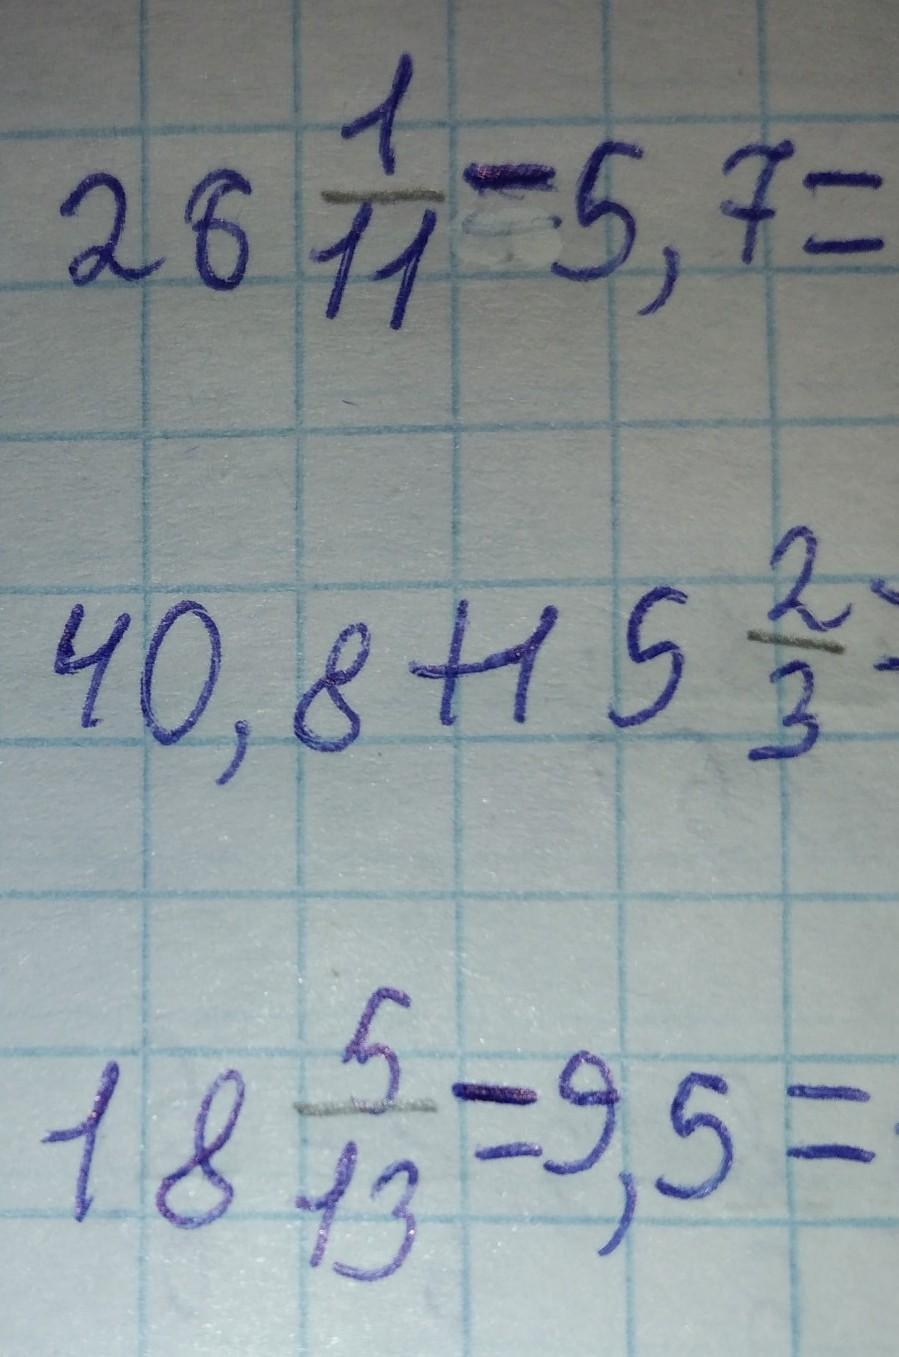 26 1/11 - 5,7 =
40,8 + 15 2/3 =
18 5/13 = 9,5 =